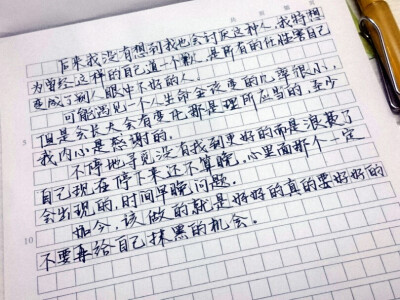 后来我没有想到我也会讨厌这种人,我特想
为曾经这样的自己道一个歉,是所有的任性寒自己
变成了别人眼中不好的人。
可能遇见一个人生命会改变的几率很小,
但是会长大会有变化都是理所应当的,至少
我内心是感谢的。
不停地寻觅没有找到更好的而是浪费了
自己现在停下来还不算晚,心里面那个一定
会出现的,时间早晚问题。
如今,该做的就是好好的真的要好好的
不要再给自己抹黑的机会。
5
10